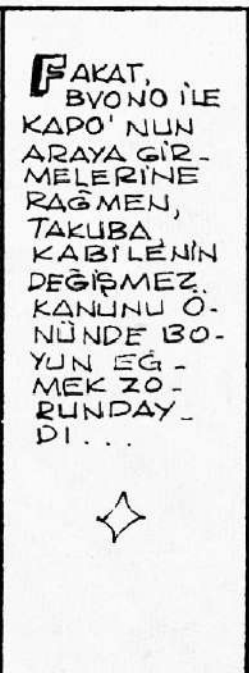 FAKAT,
BVONO İLE
KAPO'NUN
ARAYA GİR-
MELERİNE
RAĞMEN,
TAKUBA,
KABİLENİN
DEĞİŞMEZ
KANUNU Ö-
NÜNDE BO-
YUN EĞ-
MEK ZO-
RUNDAY-
DI...